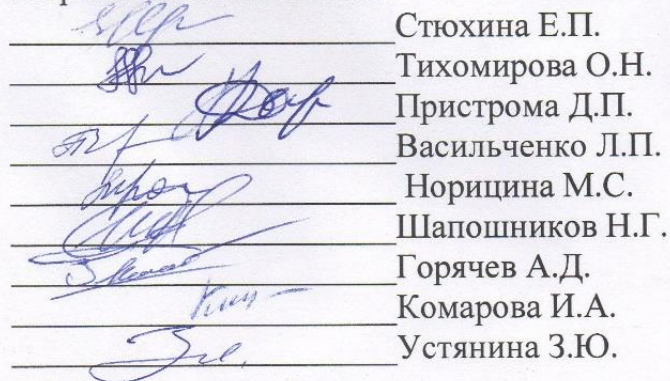 Стюхина Е.П.
Тихомирова О.Н.
Пристрома Д.П.
Васильченко Л.П.
Норицина М.С.
Шапошников Н.Г.
Горячев А.Д.
Комарова И.А.
Устянина З.Ю.